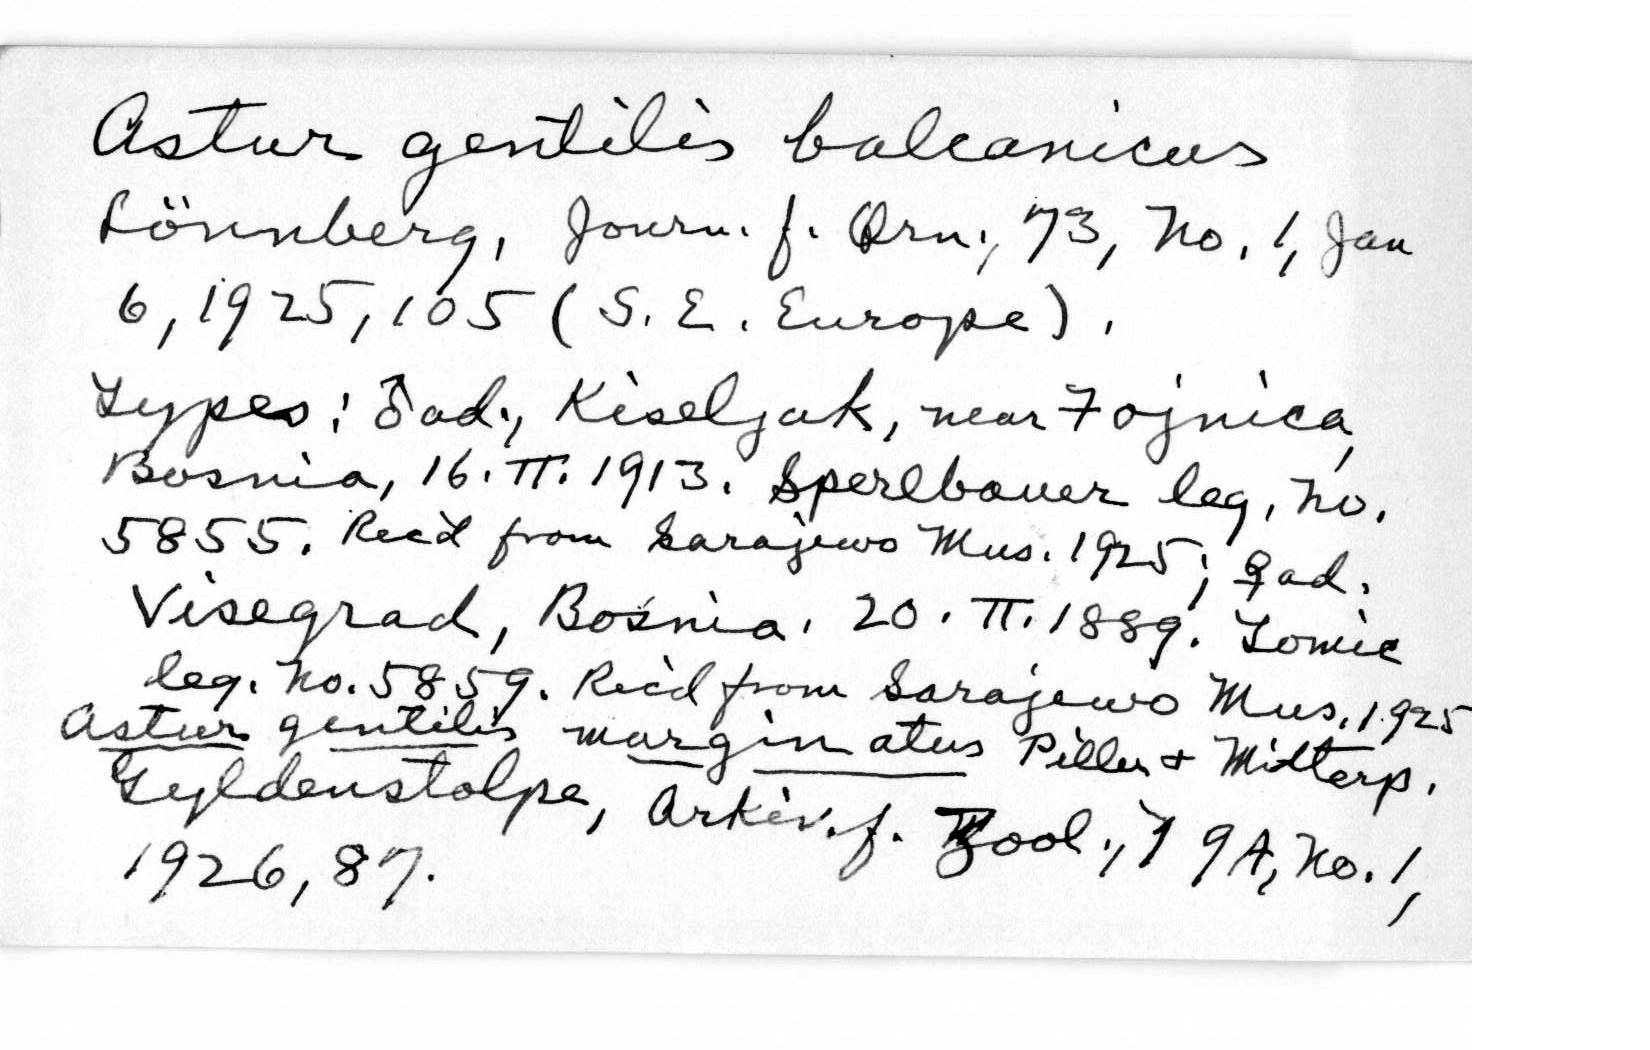 Astur gentilis balcanicus
Lönnberg, Journ. f. Orn., 73, No. 1, Jan
6, 1925, 105 (S. E. Europe).
Types: ♂ ad., Kiseljak, near Fojnica,
Bosnia, 16. II. 1913. Sperlbauer leg, No.
5855. Rec'd from Sarajewo Mus. 1925; ♀ ad.
Visegrad, Bosnia. 20. II. 1889. Tomic
leg. No. 5859. Rec'd from Sarajewo Mus. 1925
Astur gentilis marginatus Piller & Mitterp.
Gyldenstolpe, Arkiv. f. Zool., 19A, No. 1,
1926, 87.